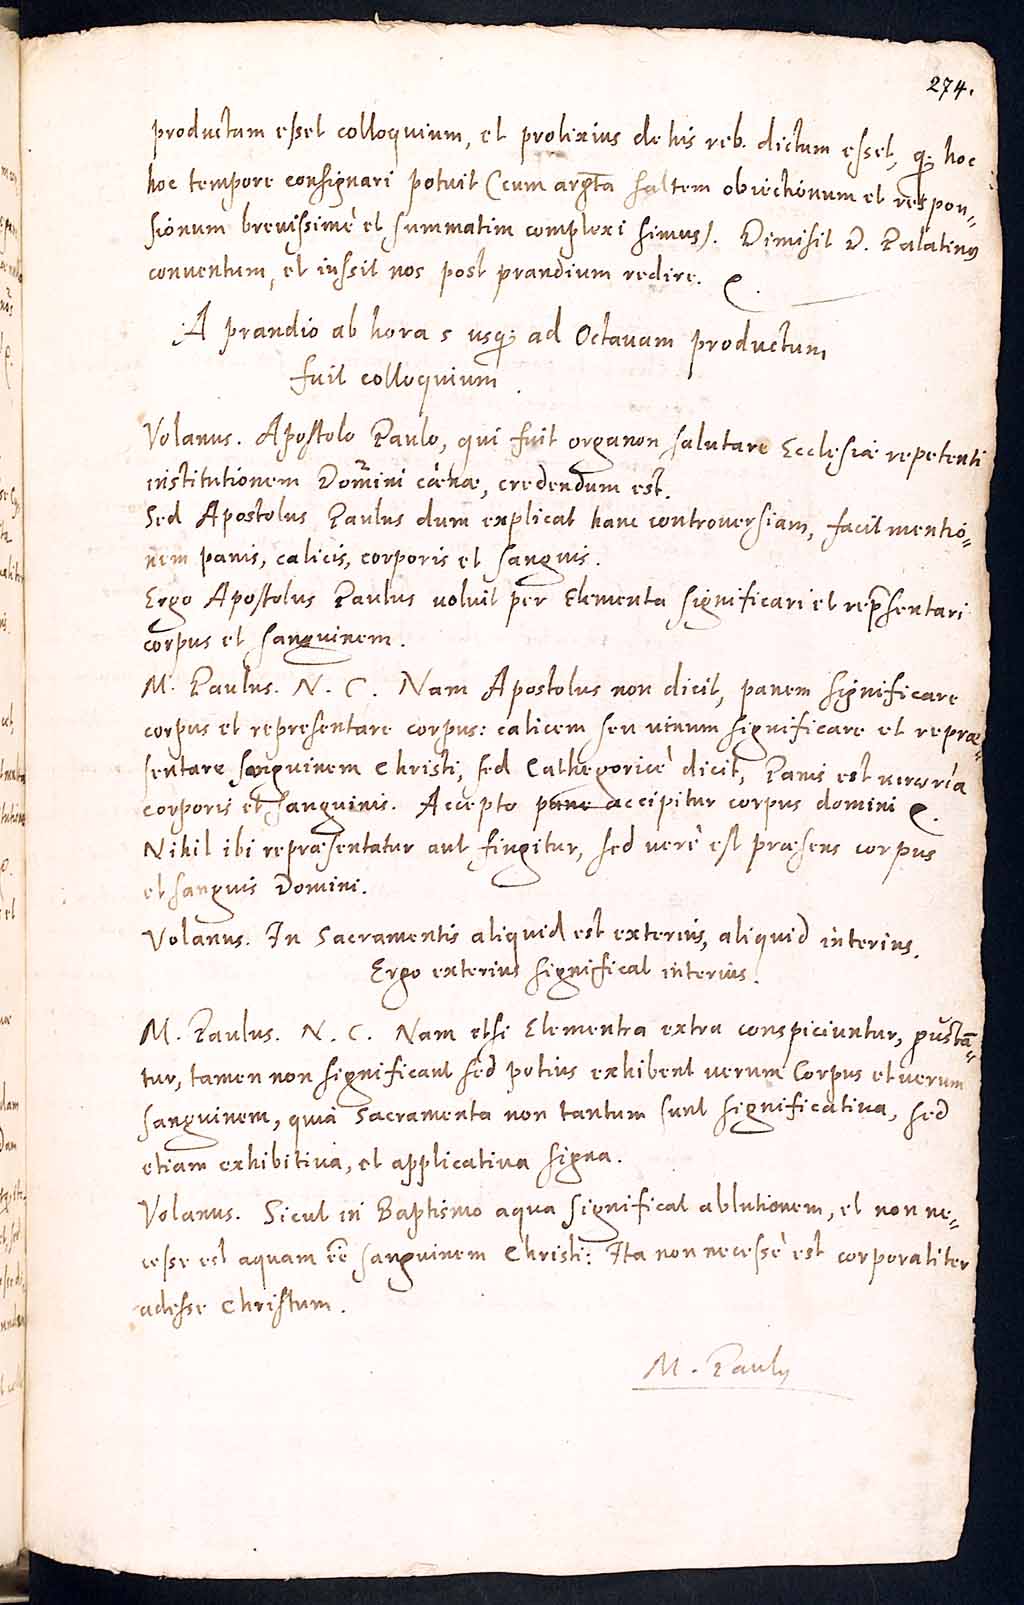 274.
productam esset colloquium, et prolixius de his reb. dictum esset, q; hoc
hoc tempore consignari potuit (cum argta saltem obiectionum et respon=
sionum brevissimè et summatim complexi simus). Dimisit D. Palatinus
conventum, et iussit nos post prandium redire.
A prandio ab hora 5 usq; ad Octavam productum
fuit colloquium.
Volanus. Apostolo Paulo, qui fuit organon salutare Ecclesiæ repetenti
institutionem Domini cænæ, credendum est.
Sed Apostolus Paulus dum explicat hanc controversiam, facit mentio=
nem panis, calicis, corporis et sanguis.
Ergo Apostolus Paulus voluit per Elementa significari et repsentari
corpus et sanguinem.
M. Paulus. N. C. Nam Apostolus non dicit, panem significare
corpus et representare corpus: calicem seu vinum significare et repræ=
sentare sanguinem Christi, sed Cathegoricè dicit, Panis est κοινωνία
corporis et sanguinis. Accepto pane accipitur corpus domini
Nihil ibi repræsentatur aut fingitur, sed verè est præsens corpus
et sanguis Domini.
Volanus. In Sacramentis aliquid est exterius, aliquid interius.
Ergo exterius significat interius.
M. Paulus. N. C. Nam etsi Elementa extra conspiciuntur, gustā=
tur, tamen non significant sed potius exhibent verum Corpus et verum
sanguinem, quia Sacramenta non tantum sunt significativa, sed
etiam exhibitiva, et applicativa signa.
Volanus. Sicut in Baptismo aqua significat ablutionem, et non ne=
cesse est aquam ee͂ sanguinem Christi: Ita non necesse est corporaliter
adesse Christum.
M. Paulus